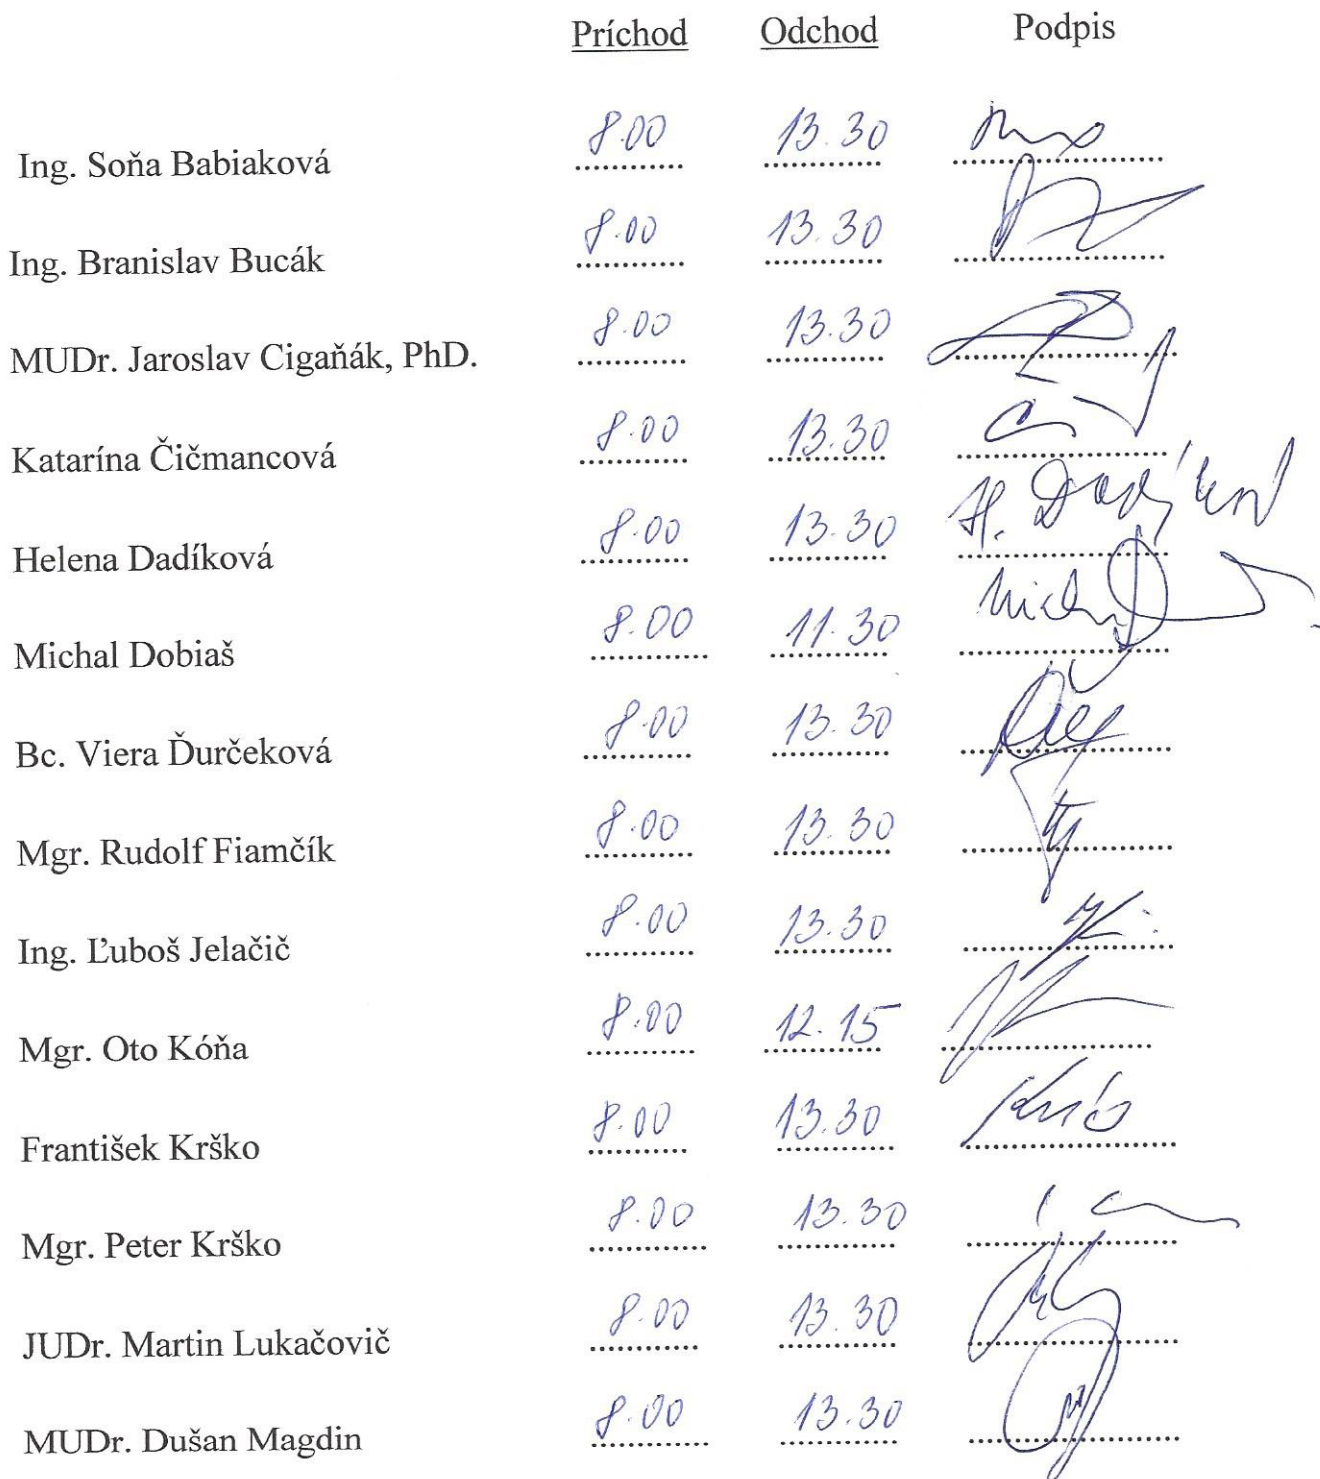 Príchod Odchod Podpis
Ing. Soňa Babiaková 8.00 13.30
Ing. Branislav Bucák 8.00 13.30
MUDr. Jaroslav Cigaňák, PhD. 8.00 13.30
Katarína Čičmancová 8.00 13.30
Helena Dadíková 8.00 13.30 H. Dadíková
Michal Dobiaš 8.00 11.30
Bc. Viera Ďurčeková 8.00 13.30
Mgr. Rudolf Fiamčík 8.00 13.30
Ing. Ľuboš Jelačič 8.00 13.30
Mgr. Oto Kóňa 8.00 12.15
František Krško 8.00 13.30
Mgr. Peter Krško 8.00 13.30
JUDr. Martin Lukačovič 8.00 13.30
MUDr. Dušan Magdin 8.00 13.30